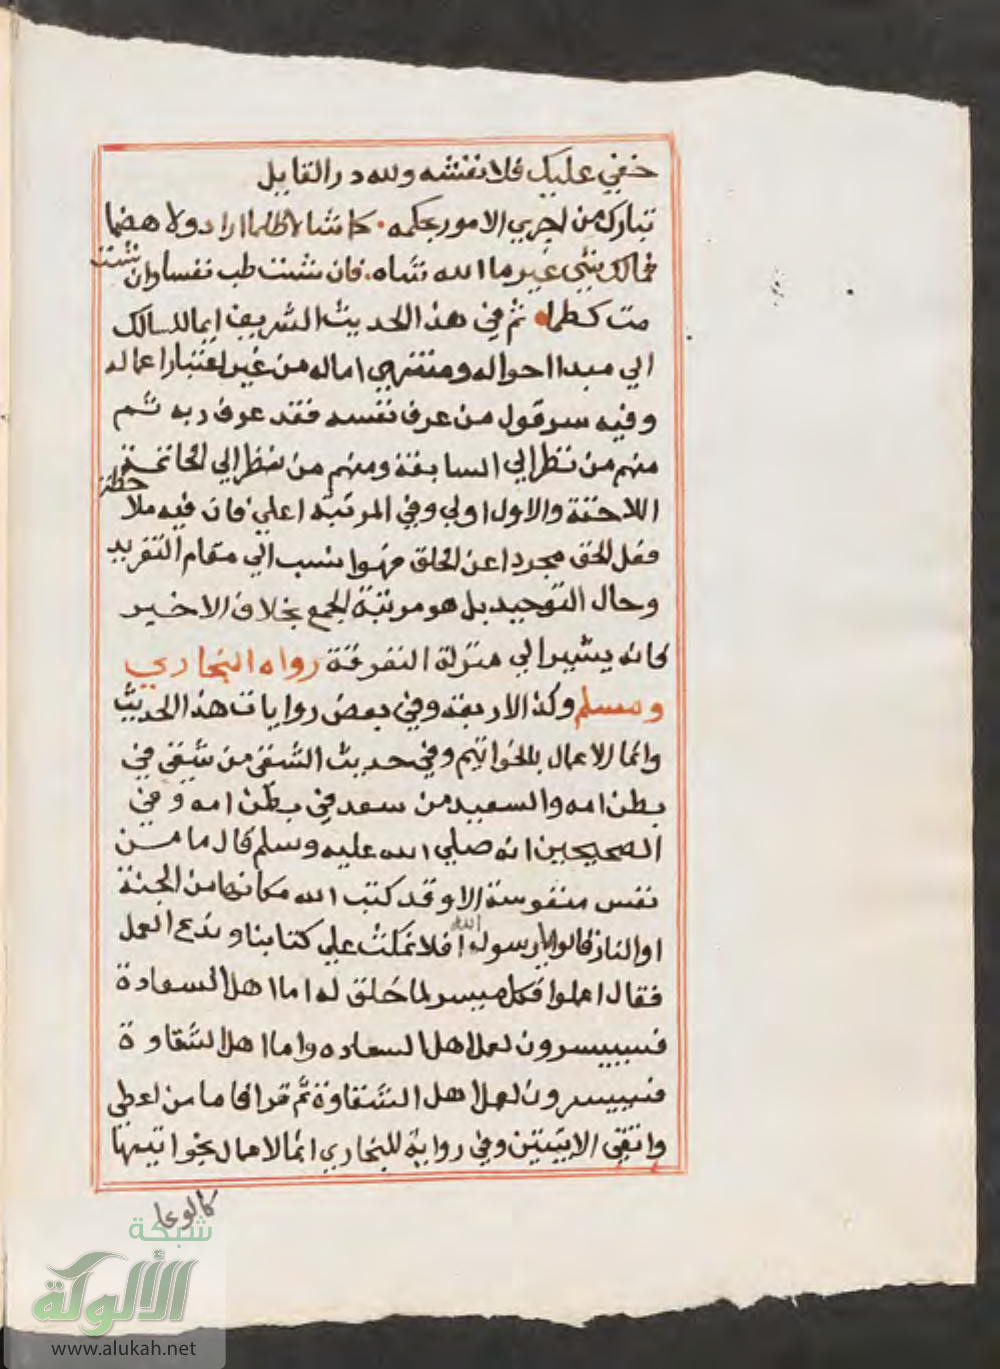 خفي عليك فلا تفتشه ولله در القايل
تبارك من اجري الامور بحكمه . كما شا لا ظلما اراد ولا هضما
فمالك شئ غير ما الله شاه . فان شئت طب نفسا وان شئت
مت كظما ثم في هذا الحديث الشريف ايما للسالك
الي مبدا احواله ومنتهي اماله من غير اعتبار اعماله
وفيه سر قول من عرف نفسه فقد عرف ربه ثم
منهم من نظر الي السابقة ومنهم من نظر الي الخاتمة
اللاحقة والاول اولي وفي المرتبة اعلي فان فيه ملاحظة
فعل الحق مجردا عن الخلق فهو انسب الي مقام التفريد
وحال التوحيد بل هو مرتبة الجمع بخلاف الاخير
فانه يشير الي منزلة التفرقة رواه البخاري
ومسلم وكذا الاربعة وفي بعض روايات هذا الحديث
وانما الاعمال بالخواتيم وفي حديث الشقي من شقي في
بطن امه والسعيد من سعد في بطن امه وفي
الصحيحين انه صلي الله عليه وسلم قال ما من
نفس منفوسة الا وقد كتب الله مكانها من الجنة
او النار فقالوا يا رسول الله افلا نمكث علي كتابنا وندع العمل
فقال اعملوا فكل ميسر لما خلق له اما اهل السعادة
فسييسرون لعمل اهل السعاده واما اهل الشقاوة
فسييسرون لعمل اهل الشقاوة ثم قرا فاما من اعطي
واتقي الايتين وفي رواية للبخاري انما الاعمال بخواتيمها
كالوعا
شبكة
الألوكة
www.alukah.net